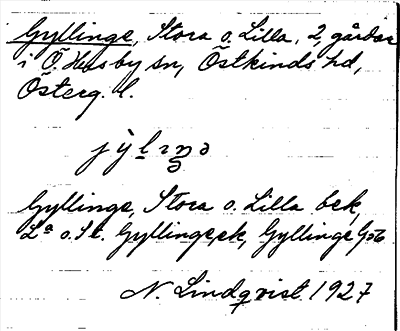 Gyllinge, Stora o. Lilla, 2, gårdar
i Ö. Husby sn, Östkinds hd,
Österg. l.
Gyllinge, Stora o. Lilla bek,
La o. St. Gyllinge, ek, Gyllinge,
N. Lindqvist 1927